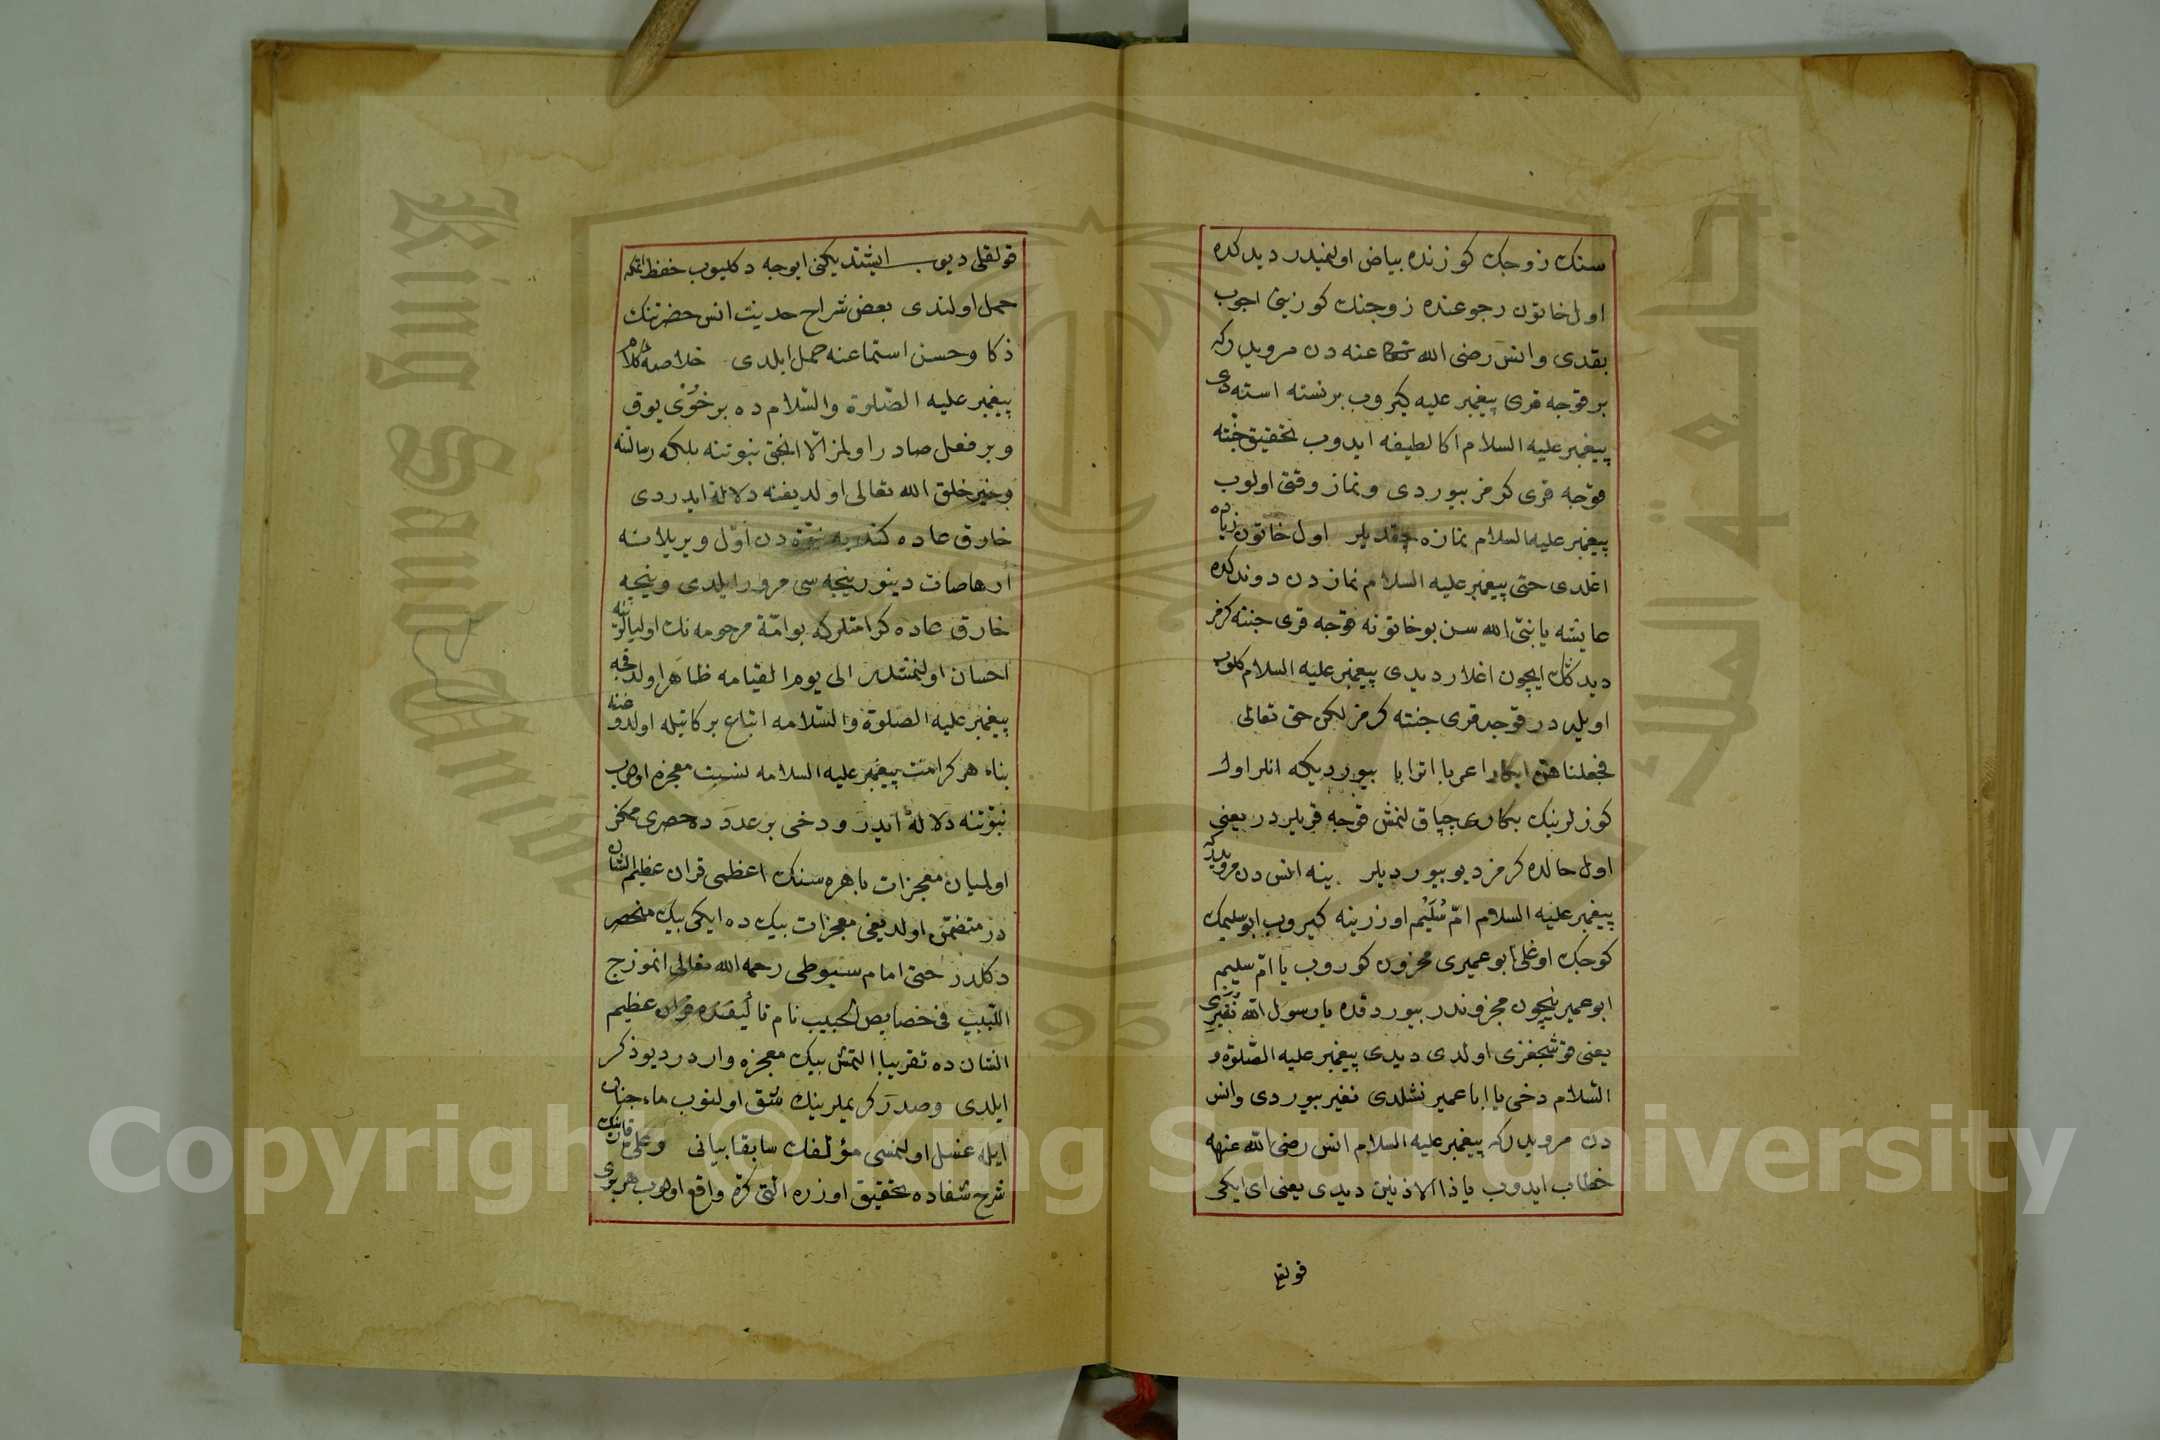 سنك زوجك كوزنده بياض اولميدر ديدكده
اول خاتون رجوعنده زوجنك كوزينى اچوب
بقدى وانس رضى الله تعالى عنه دن مرويدركه
بر قوجه قرى پيغمبر عليه كيروب بر نسته استه دى
پيغمبر عليه السلام اكا لطيفه ايدوب تحقيق جنته
قوجه قرى كرمز بيوردى ونماز وقتى اولوب
پيغمبر عليه السلام نمازه چقديلر اول خاتون زياده
اغلدى حتى پيغمبر عليه السلام نمازدن دوندكده
عايشه يا نبى الله سن بو خاتونه قوجه قرى جنته كرمز
ديدكك ايچون اغلار ديدى پيغمبر عليه السلام كلوب
اويله در قوجه قرى جنته كرمز لكن حق تعالى
فجعلناهن ابكارا عربا اترابا بيورديكه انلر اول
كوزلرينك چپاقلنمش قوجه قريلردر يعنى
اول حالده كرمز ديو بيورديلر ينه انس دن مرويدركه
پيغمبر عليه السلام امّ سُلَيْم اوزرينه كيروب ابو سليمك
كوجك اوغلى ابو عميرى محزون كوروب يا امّ سليم
ابو عمير نيچون محزوندر بيوردقده يا رسول الله نُغَيْرى
يعنى قوشجغزى اولدى ديدى پيغمبر عليه الصّلوة و
السّلام دخى يا ابا عمير نشلدى نغير بيوردى وانس
دن مرويدركه پيغمبر عليه السلام انس رضى الله عنهه
خطاب ايدوب يا ذا الاذنين ديدى يعنى اى ايكى
قولقلى
قولقلى ديوب ايشتديكنى ايوجه دكليوب حفظ اتمكه
حمل اولندى بعض شراح حديث انس حضرتنك
ذكا وحسن استماعنه حمل ايلدى خلاصه كلام
پيغمبر عليه الصّلوة والسّلام ده بر خُوْى يوق
وبر فعل صادر اولمز الّا انجق نبوتنه بلكه رسالتنه
وخير خلق الله تعالى اولديغنه دلالة ايدردى
خارق عاده كندويه نبوّة دن اوّل ويريلانه
ارهاصات دينور نيجه سى مرور ايلدى ونيجه
خارق عاده كرامتلركه بو امّة مرحومه نك اوليالرينه
احسان اولنمشلدر الى يوم القيامه ظاهر اولدقجه
پيغمبر عليه الصلوة والسّلامه اتباع بركاتيله اولدوغنه
بناء هر كرامت پيغمبر عليه السلامه نسبت معجزه اولوب
نبوّتنه دلالة ايدر ودخى بر عددده حصرى ممكن
اولميان معجزات باهره سنك اعظمى قران عظيم الشان
در متضمّن اولديغى معجزات بيك ده ايكى بيك منحصر
دكلدر حتى امام سيوطى رحمه الله تعالى انموزج
اللّبيب فى خصايص الحبيب نام تأليفنده قران عظيم
الشان ده تقريبا التمش بيك معجزه واردر ديو ذكر
ايلدى وصدر كريملرينك شق اولنوب ماء جنان
ايله غسل اولنمسى مؤلفك سابقا بيانى وعلى قارينك
شرح شفاده تحقيق اوزره التى كرّة واقع اولوب هر برى